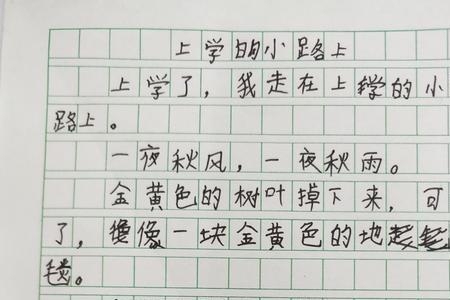 上学的小路上
上学了，我走在上学的小
路上。
一夜秋风，一夜秋雨。
金黄色的树叶掉下来，可
了，像一块金黄色的地
毯。